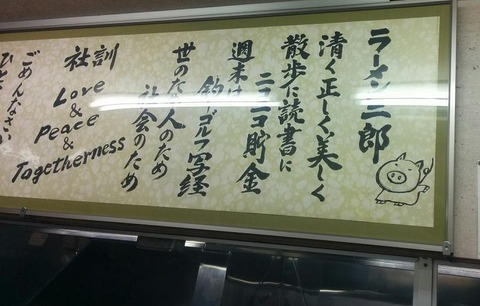 ラーメン二郎
清く正しく美しく
散歩に読書に
ニコニコ貯金
週末は
釣り ゴルフ 写経
世のため人のため
社会のため
社訓
Love
&
Peace
&
Togetherness
ごめんなさい